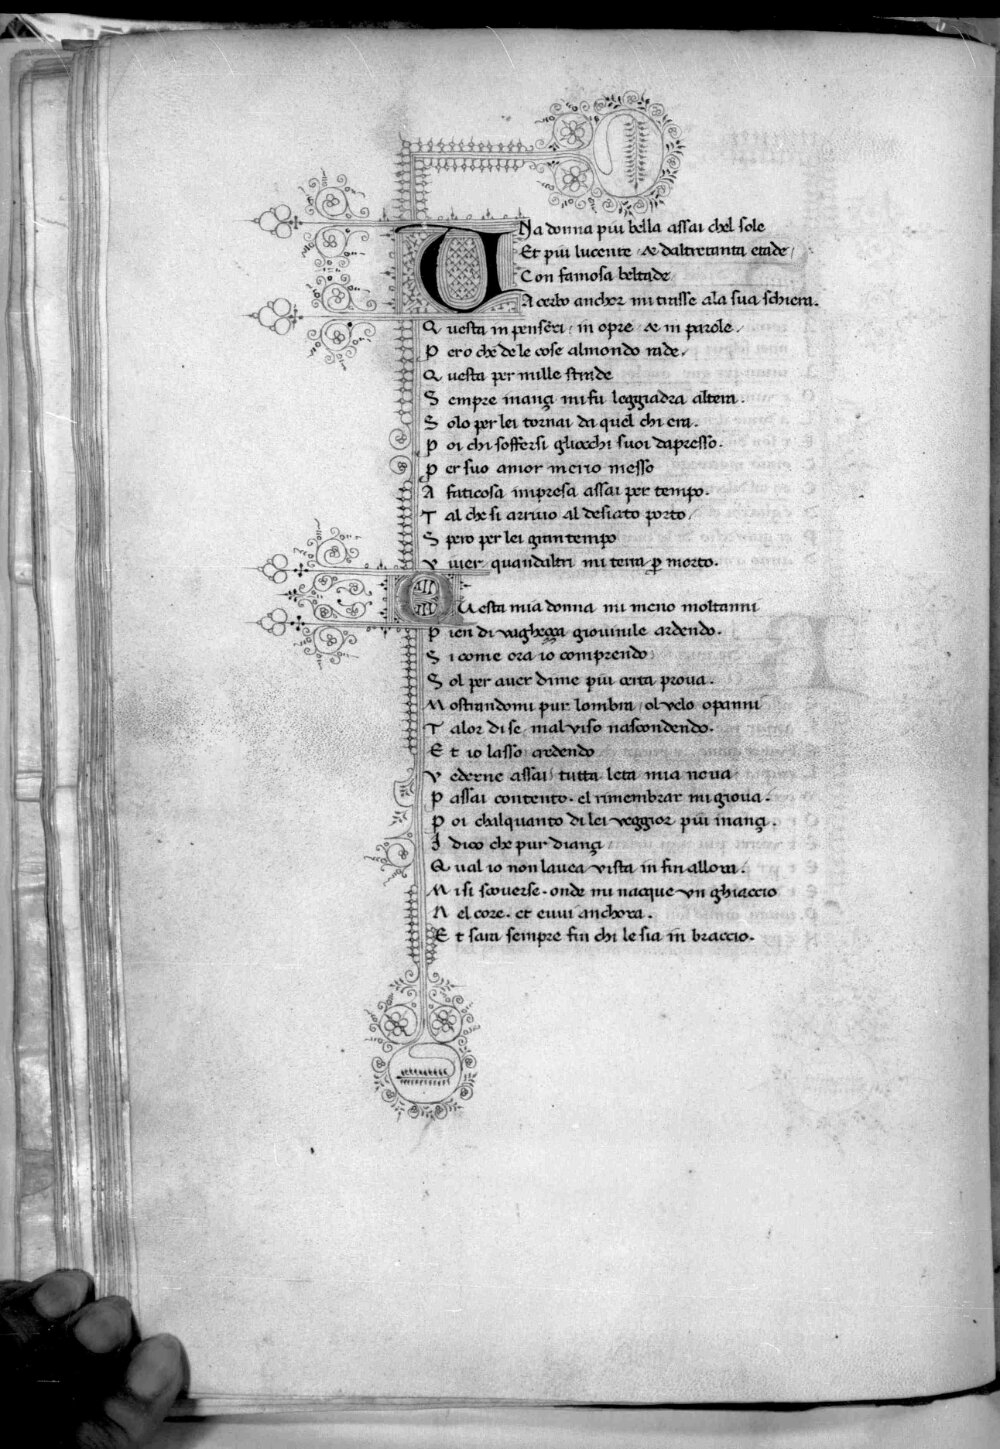 UNa donna piu bella assai chel sole
Et piu lucente & daltretanta etade
Con famosa beltade
Acerbo anchor mi trasse ala sua schiera.
Questa in penseri in opre & in parole
Pero che de le cose almondo rade
Questa per mille strade
Sempre inançi mi fu leggiadra altera.
Solo per lei tornai da quel chi era.
Poi chi soffersi gliocchi suoi dapresso.
Per suo amor mero messo
A faticosa impresa assai per tempo.
Tal che si arriuo al desiato porto
Spero per lei gran tempo
Viuer quandaltri mi terra ꝑ morto.
QUesta mia donna mi meno moltanni
Pien di vagheçça giouinile ardendo.
Si come ora io comprendo
Sol per auer di me piu certa proua.
Mostrandomi pur lombra ol velo o panni
Talor di se mal viso nascondendo.
Et io lasso credendo
Vederne assai tutta leta mia noua
Passai contento. el rimembrar mi gioua.
Poi chalquanto di lei veggior piu inançi.
I dico che pur diançi
Qual io non lauea vista in fin allora.
Misi scouerse. onde mi nacque vn ghiaccio
Nel core. et euui anchora.
Et sara sempre fin chi le sia in braccio.